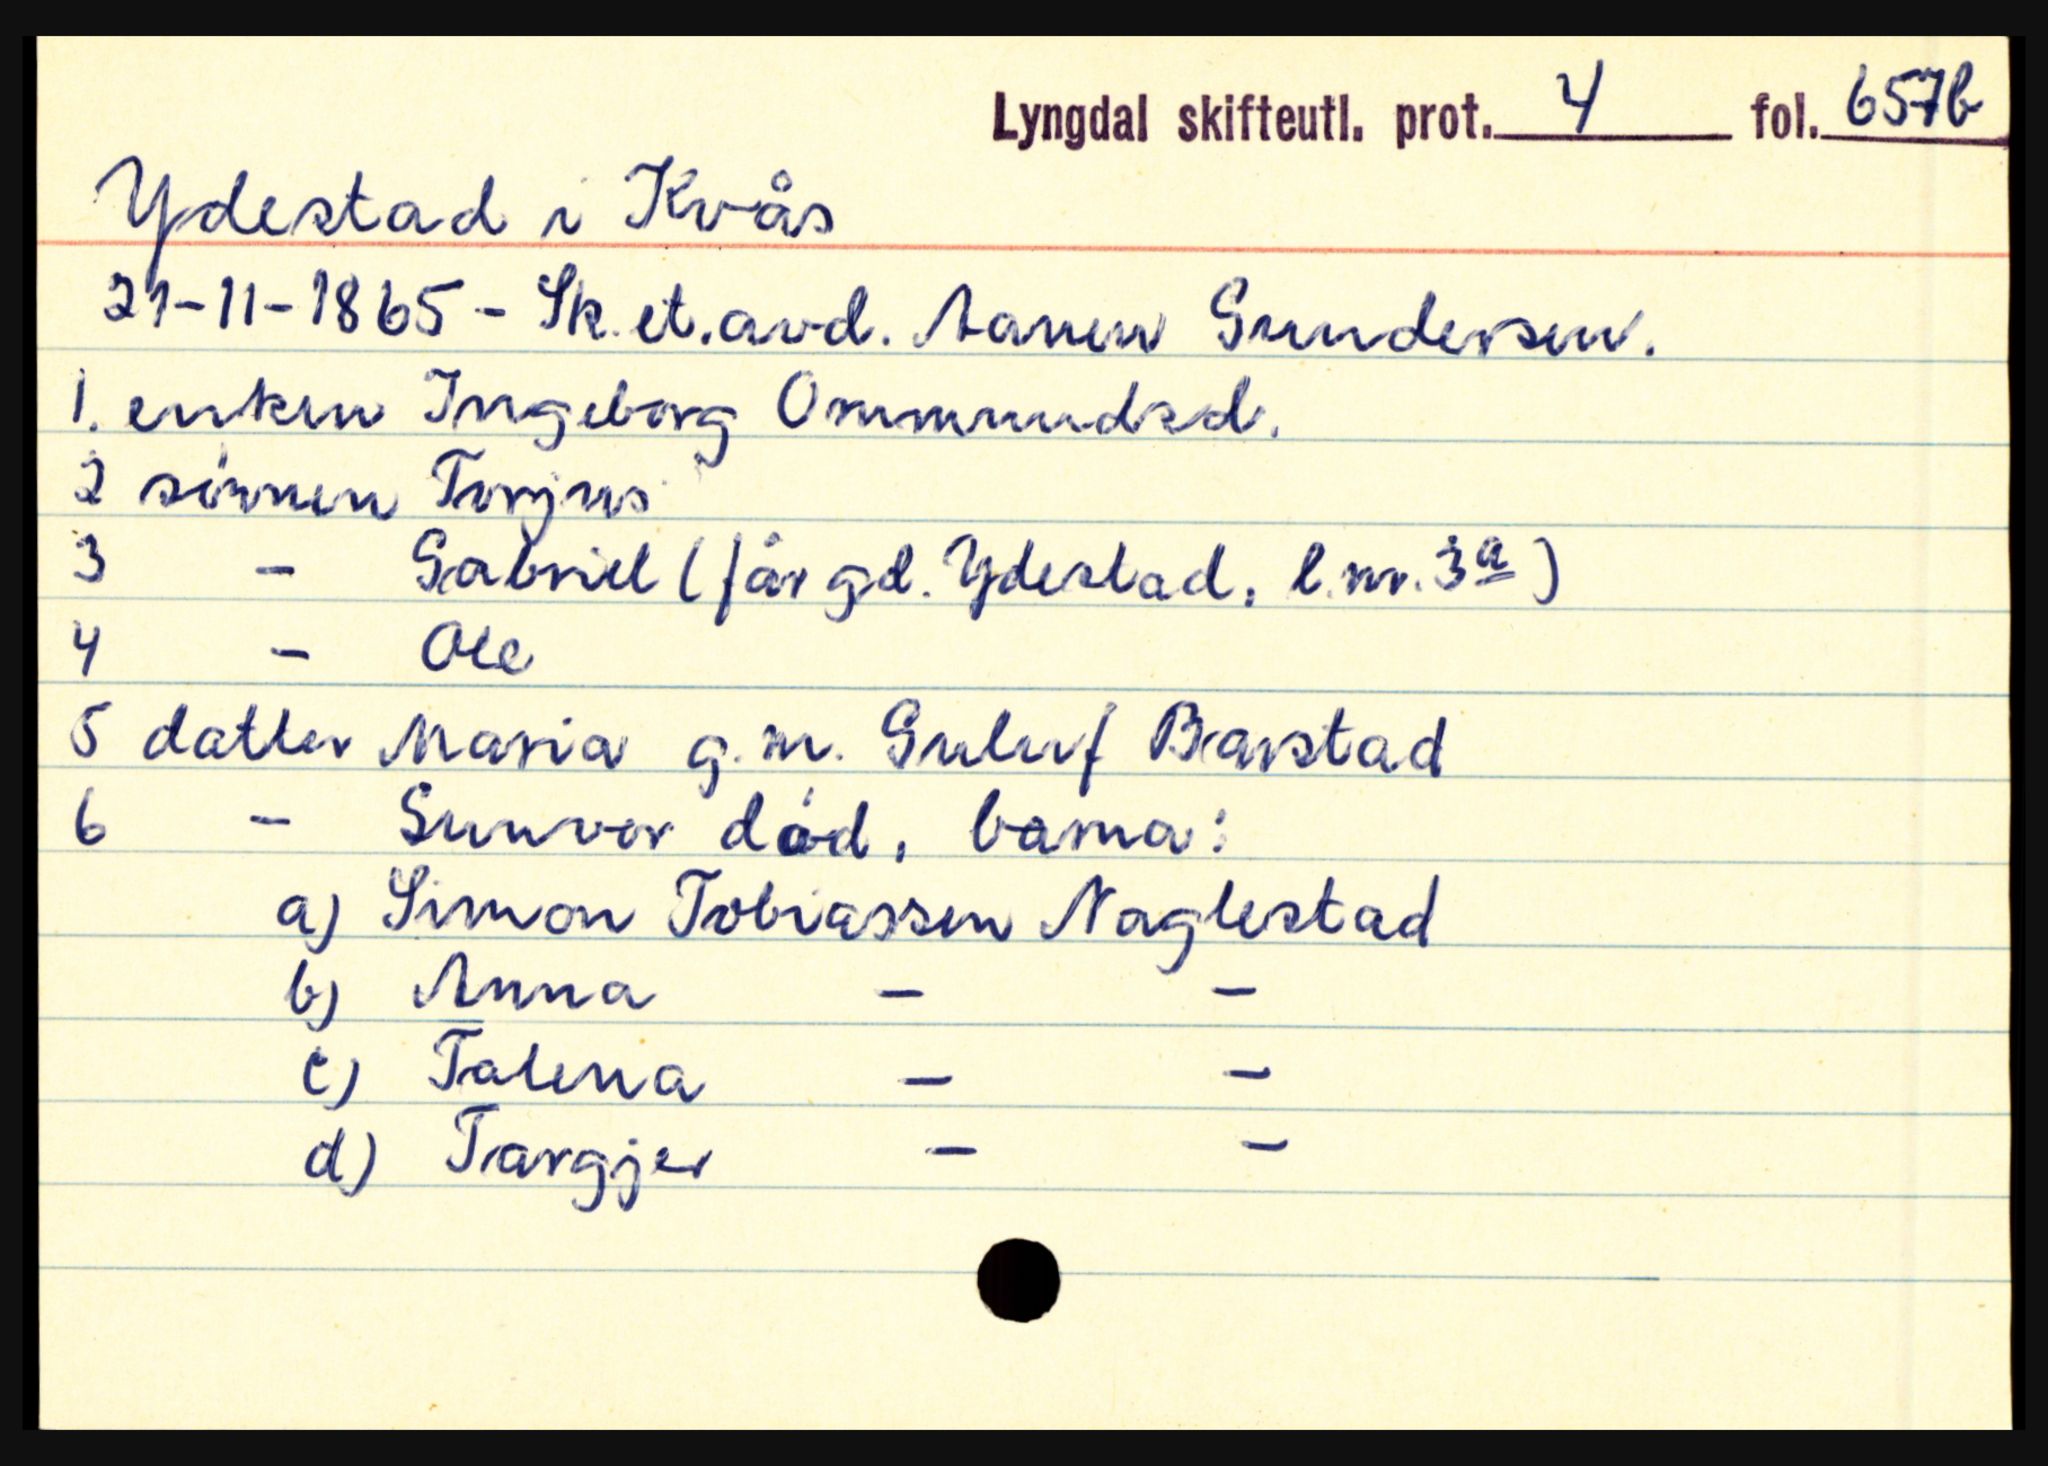 Lyngdal skifteutl. prot. 4 fol. 657b
Ydestad i Kvås
21-11-1865 - Sk. et. avd. Aanen Gundersen.
1. enken Ingeborg Ommundsd.
2 sønnen Torjus
3 - Gabriel (får gd. Ydestad, l.nr. 3a)
4 - Ole
5 datter Maria g.m. Guluf Barstad
6 - Sunvor død, barna:
a) Simon Tobiassen Naglestad
b) Anna - -
c) Talena - -
d) Targjer - -